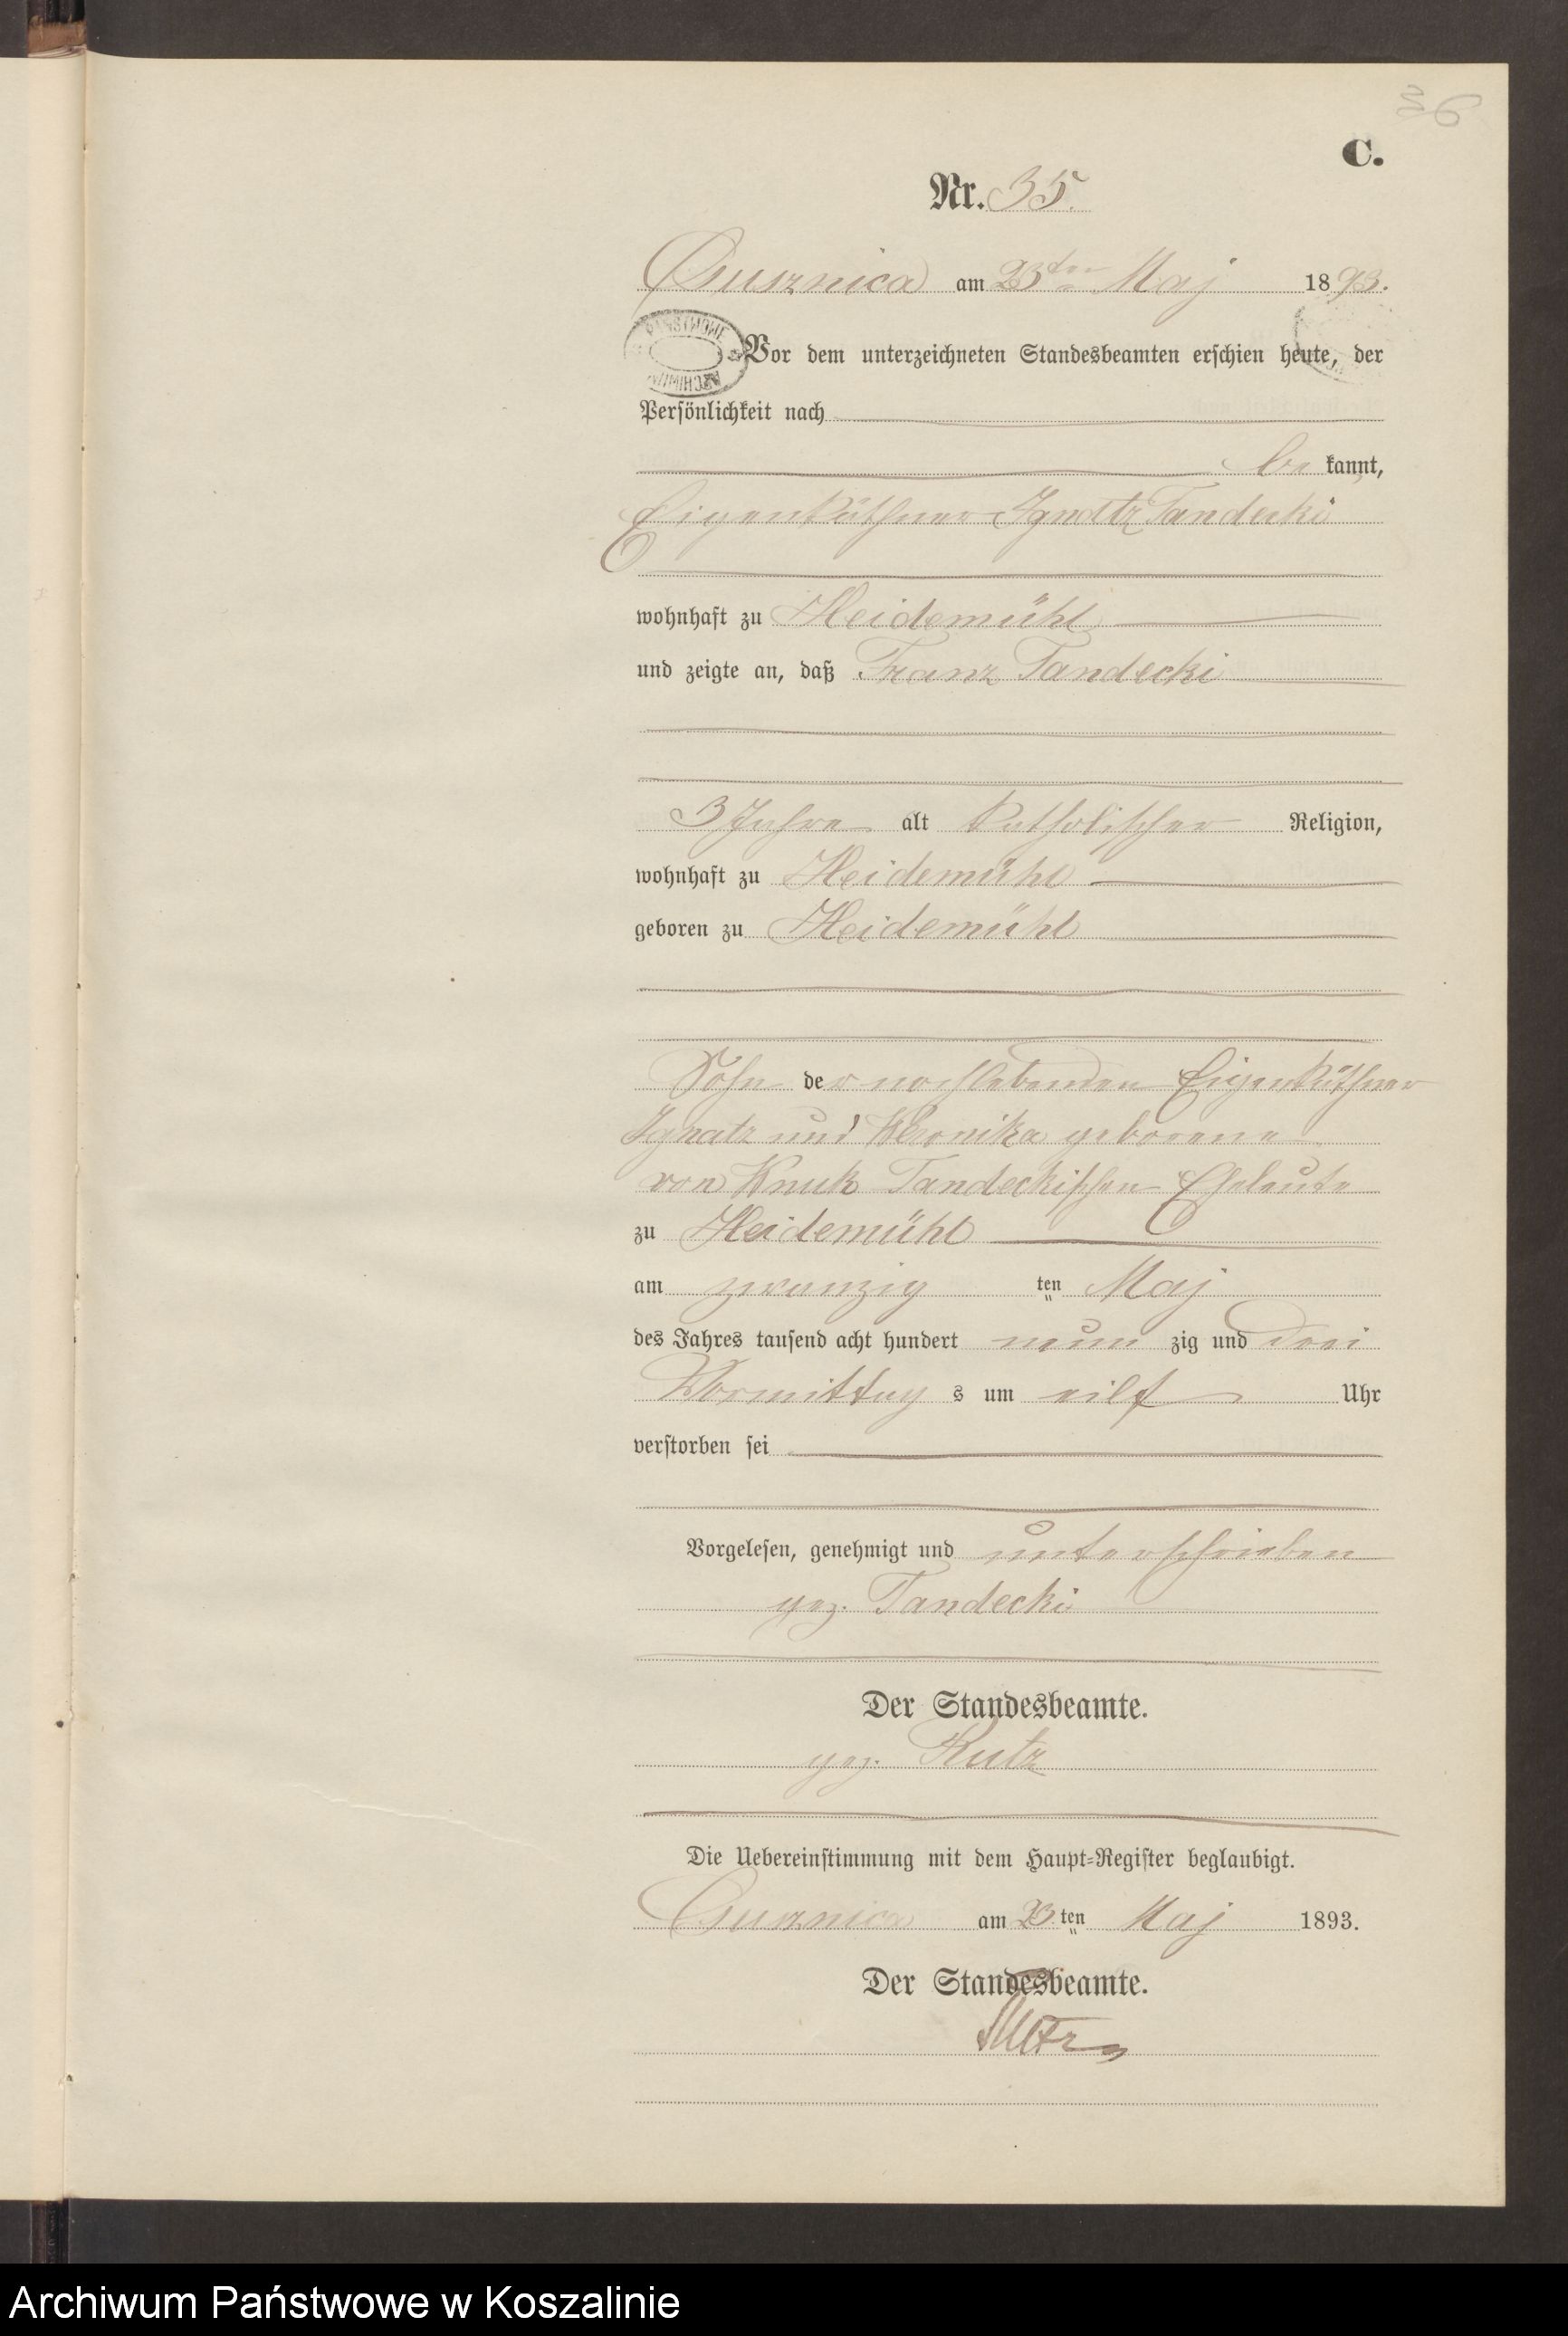 36
C.
Nr. 35.
am 23ten Maj 1893.
PAŃSTWOWE
ARCHIWUM
Vor dem unterzeichneten Standesbeamten erschien heute, der
Persönlichkeit nach
be kannt,
Eigenkäthner Ignatz Tandecki
wohnhaft zu Heidemühl
und zeigte an, daß Franz Tandecki
3 Jahre alt katholischer Religion,
wohnhaft zu Heidemühl
geboren zu Heidemühl
Sohn der nochlebenden Eigenkäthner
Ignatz und Veronika geborene
von Tandeckischen Eheleute
zu Heidemühl
am zwanzig ten Maj
des Jahres tausend acht hundert neun zig und drei
Vormittag s um eilf Uhr
verstorben sei
Vorgelesen, genehmigt und unterschrieben
gez. Tandecki
Der Standesbeamte.
gez. Rutz
Die Uebereinstimmung mit dem Haupt-Register beglaubigt.
am 23 ten Maj 1893.
Der Standesbeamte.
Rutz
Archiwum Państwowe w Koszalinie